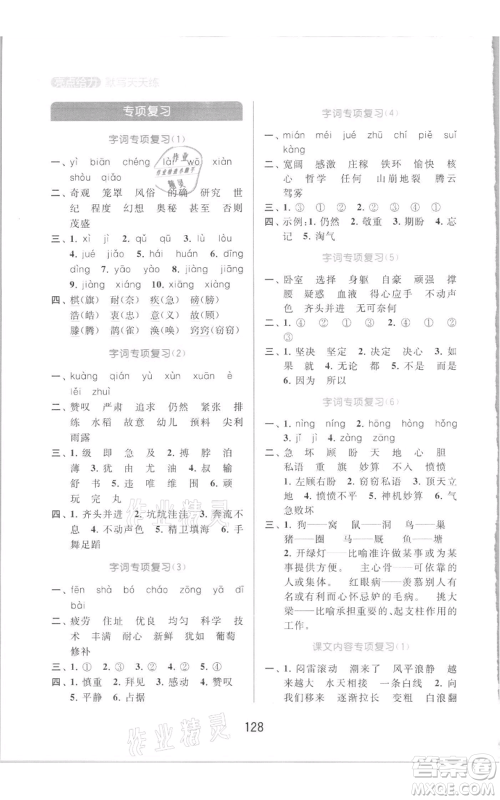 亮点给力 默写天天练
专项复习
字词专项复习(1)
一、yì biān chéng yīng
shū zhào
二、奇观 笼罩 风俗 的确 研究 世
纪 程度 幻想 奥秘 甚至 否则
茂盛
三、1. xì jì 2. dī dí 3. lù lòu
4. jué jiào 5. háo hào 6. dīng
dìng 7. yà yā 8. jiàng jiāng
9. jiāng jiàng 10. xiāng xiàng
四、棋(旗) 耐(奈) 疾(急) 磅(膀)
浩(皓) 震(振) 暴(爆) 掠(惊)
滕(腾) 鹊(雀) 涣(唤) 窍窍(窃窃)
字词专项复习(2)
一、kuàng qiàn yù xún xuān è
lěi zhuī
二、赞叹 严肃 追求 仍然 繁殖 排
练 水稻 故意 幼儿 预料 尖利
雨露
三、1. 级 即 急 及 2. 搏 脖 泊
薄 3. 犹 由 尤 油 4. 叔 输
舒 书 5. 违 唯 维 围 6. 顽
玩 完 丸
四、1. 齐头并进 2. 坑坑洼洼 3. 奔流不
息 4. 不动声色 5. 精卫填海 6. 手
舞足蹈
字词专项复习(3)
一、tēn shà bó cháo cì zhào dī
bài
二、疲劳 住址 优良 均匀 科学 技
术 潮湿 耐心 新鲜 犹如 葡萄
修补
三、1. ① 2. ② 3. ② 4. ① 5. ②
四、1. 慎重 2. 拜见 3. 成果 4. 赞叹
5. 平静 6. 占据
字词专项复习(4)
一、mián méi jué zhū chī piē suǐ
kàng
二、宽阔 盛开 庄稼 铁环 愉快 核
心 哲学 系统 山崩地裂 腾云
驾雾
三、1. ① 2. ③ 3. ① 4. ④ 5. ②
四、示例:1. 仍然 2. 敬重 3. 期盼 4. 忘
记 5. 淘气
字词专项复习(5)
一、卧室 选择 身躯 自豪 顽强 撑
腰 疑惑 血液 得心应手 大吃一惊
齐头并进 无可奈何
二、1. ④ 2. ① 3. ① 4. ① 5. ③
三、1. 坚决 坚定 2. 决定 决心 3. 如
果 就 4. 不是 而是 5. 尽管 还是
6. 因为 所以
字词专项复习(6)
一、1. níng nìng 2. háng hòng hǒng
3. jī jǐ 4. zhèng zhēng
二、1. 急 坏 顾盼 天 地 心 胆
私语 重重 妙算 不备 大惊
2. 左顾右盼 3. 窃窃私语 4. 顶天立
地 5. 攻其不备 6. 神机妙算 7. 气
急败坏
三、1. 狗—— 河—— 鸭—— 虎——
虾—— 鸡—— 虫—— 牛—— 鼠——
2. 开绿灯——比喻准许做某事或为某
事提供方便。 主心骨——核心人物
或主见、主意。 红眼病——羡慕别人
有名或有利而心怀忌妒的毛病。 挑大
梁——比喻承担重要的、起支柱作用的
工作。
课文内容专项复习(1)
一、1. 闷雷滚动 潮来了 风平浪静 越
来越大 一条白线 2. 那条白线 越
来越长 逐渐拉长 变粗 白浪翻
128